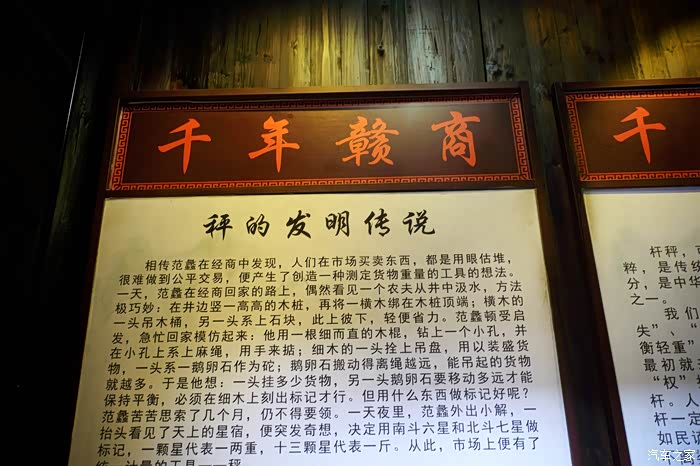 千年赣商
秤的发明传说
相传范蠡在经商中发现，人们在市场买卖东西，都是用眼估堆，
很难做到公平交易，便产生了创造一种测定货物重量的工具的想法。
一天，范蠡在经商回家的路上，偶然看见一个农夫从井中汲水，方法
极巧妙：在井边竖一高高的木桩，再将一横木绑在木桩顶端；横木的
一头吊木桶，另一头系上石块，此上彼下，轻便省力。范蠡顿受启
发，急忙回家模仿起来：他用一根细而直的木棍，钻上一个小孔，并
在小孔上系上麻绳，用手来掂；细木的一头拴上吊盘，用以装盛货
物，一头系一鹅卵石作为砣；鹅卵石搬动得离绳越远，能吊起的货物
就越多。于是他想：一头挂多少货物，另一头鹅卵石要移动多远才能
保持平衡，必须在细木上刻出标记才行。但用什么东西做标记好呢？
范蠡苦苦思索了几个月，仍不得要领。一天夜里，范蠡外出小解，一
抬头看见了天上的星宿，便突发奇想，决定用南斗六星和北斗七星做
标记，一颗星代表一两重，十三颗星代表一斤。从此，市场上便有了
统一计量的工具——秤
千
杆秤，可
粹，是传统
分，是中华
之一。
我们
失”、
衡轻重”
最初就
“权”
杆。人
杆一定
如民谚
汽车之家